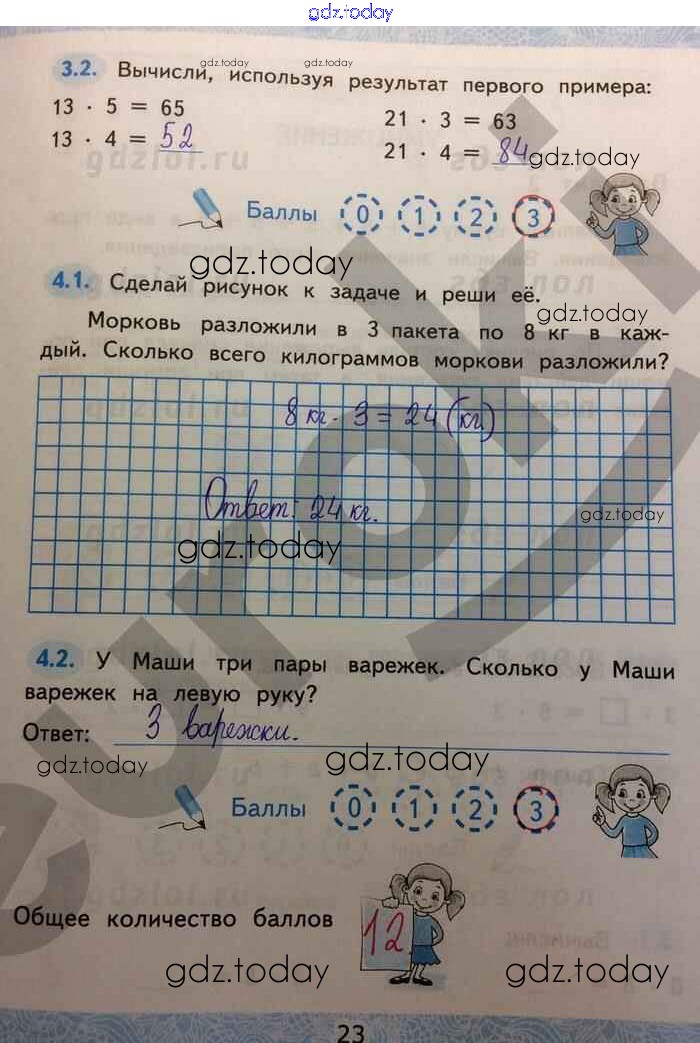 gdz.today
3.2. Вычисли, используя результат первого примера:
gdz.today gdz.today
13 · 5 = 65
13 · 4 = 52
21 · 3 = 63
21 · 4 = 84
gdz.today
gdzlol.ru
Баллы 0 1 2 3
gdz.today
4.1. Сделай рисунок к задаче и реши её.
gdz.today
Морковь разложили в 3 пакета по 8 кг в каж-
дый. Сколько всего килограммов моркови разложили?
8 кг · 3 = 24 (кг)
Ответ: 24 кг.
gdz.today
gdz.today
4.2. У Маши три пары варежек. Сколько у Маши
варежек на левую руку?
Ответ: 3 варежки.
gdz.today
gdz.today
Баллы 0 1 2 3
Общее количество баллов 12
gdz.today
gdz.today
23